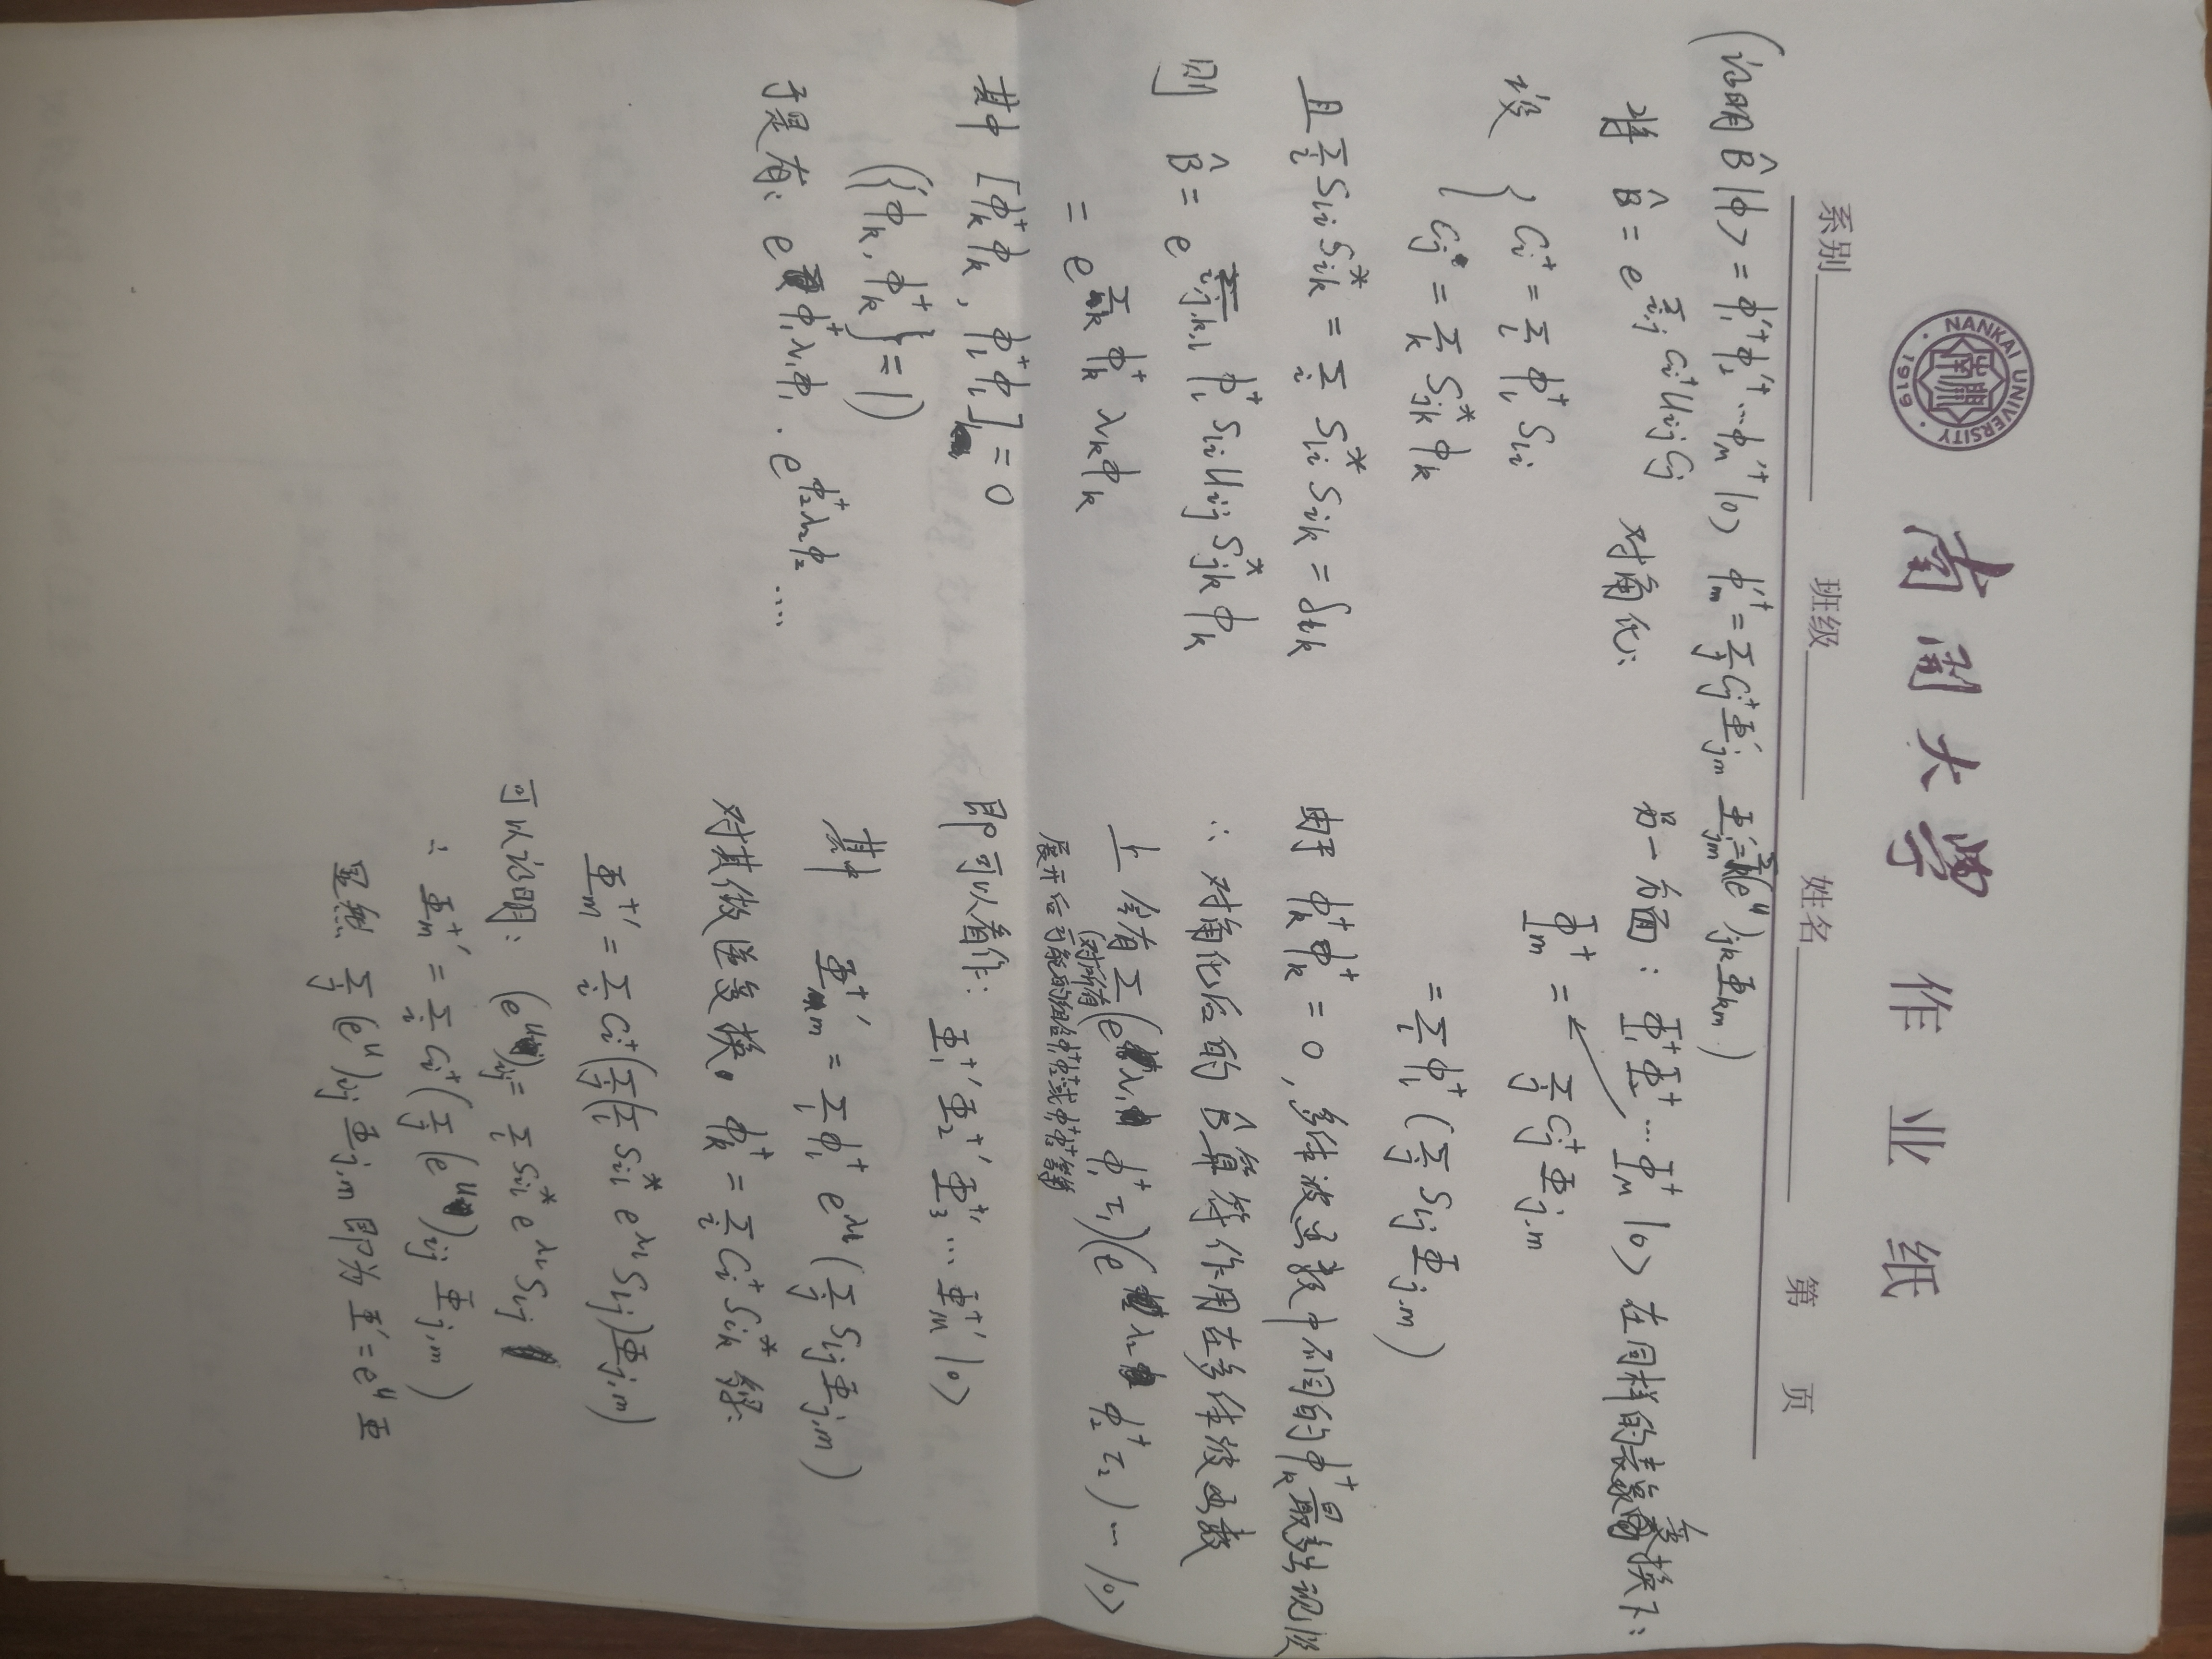 NANKAI UNIVERSITY
南開
1919
南开大学 作业纸
系别 班级 姓名 第 页
(证明 B̂|ϕ> = ϕ₁'⁺ϕ₂'⁺…ϕ_M'⁺|0> ϕ_m'⁺ = Σ_j C_j⁺Φ'_jm Φ'_jm = Σ(e^u)_jk Φ_km)
将 B̂ = e^{Σ_{i,j} C_i⁺ U_ij C_j} 对角化:
设 { C_i⁺ = Σ_l ϕ_l⁺ S_li
C_j = Σ_k S_jk* ϕ_k
且 Σ_i S_li S_ik* = Σ_i S_li* S_ik = δ_lk
则 B̂ = e^{Σ_{i,j,k,l} ϕ_l⁺ S_li U_ij S_jk* ϕ_k}
= e^{Σ_k ϕ_k⁺ λ_k ϕ_k}
其中 [ϕ_k⁺ϕ_k, ϕ_l⁺ϕ_l] = 0
({ϕ_k, ϕ_k⁺} = 1)
于是有: e^{ϕ₁⁺λ₁ϕ₁} · e^{ϕ₂⁺λ₂ϕ₂} ….
另一方面: Φ₁⁺Φ₂⁺…Φ_M⁺|0> 在同样的表象变换下:
Φ_m⁺ = Σ_j C_j⁺ Φ_j,m
= Σ_l ϕ_l⁺ (Σ_j S_lj Φ_j,m)
由于 ϕ_k⁺ϕ_k⁺ = 0, 多体波函数中不同的ϕ_k⁺最多出现
∴ 对角化后的 B̂ 算符作用在多体波函数
上 会有 Σ (e^{λ₁} ϕ₁⁺ τ₁)(e^{λ₂} ϕ₂⁺ τ₂) … |0>
(对所有
展开后可能的组合ϕ₁⁺ϕ₂⁺或ϕ₁⁺ϕ₃⁺等
即可以看作: Φ₁⁺'Φ₂⁺'Φ₃⁺'…Φ_M⁺'|0>
其中 Φ_m⁺' = Σ_l ϕ_l⁺ e^{λ_l} (Σ_j S_lj Φ_j,m)
对其做逆变换. ϕ_k⁺ = Σ_i C_i⁺ S_ik* 得:
Φ_m⁺' = Σ_i C_i⁺(Σ_j(Σ_l S_il* e^{λ_l} S_lj)Φ_j,m)
可以证明: (e^u)_ij = Σ_l S_il* e^{λ_l} S_lj
∴ Φ_m⁺' = Σ_i C_i⁺(Σ_j (e^u)_ij Φ_j,m)
显然 Σ_j (e^u)_ij Φ_j,m 即为 Φ' = e^u Φ